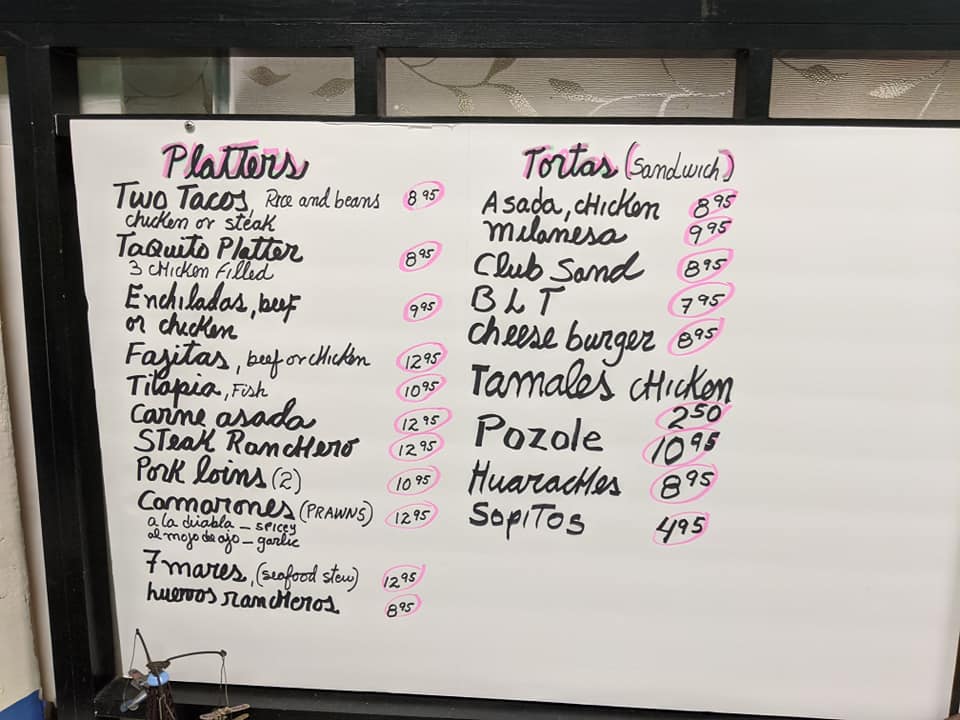 Platters
Two Tacos, Rice and beans 8.95
chicken or steak
Taquito Platter 8.95
3 chicken Filled
Enchiladas, beef 9.95
or chicken
Fajitas, beef or chicken 12.95
Tilapia, Fish 10.95
Carne asada 12.95
Steak Ranchero 12.95
Pork loins (2) 10.95
Camarones (PRAWNS) 12.95
a la diabla - spicey
al mojo de ajo - garlic
7 mares, (seafood stew) 12.95
huevos rancheros 8.95
Tortas (Sandwich)
Asada, chicken 8.95
milanesa 9.95
Club Sand 8.95
BLT 7.95
cheese burger 8.95
Tamales chicken
2.50
Pozole 10.95
Huaraches 8.95
Sopitos 4.95